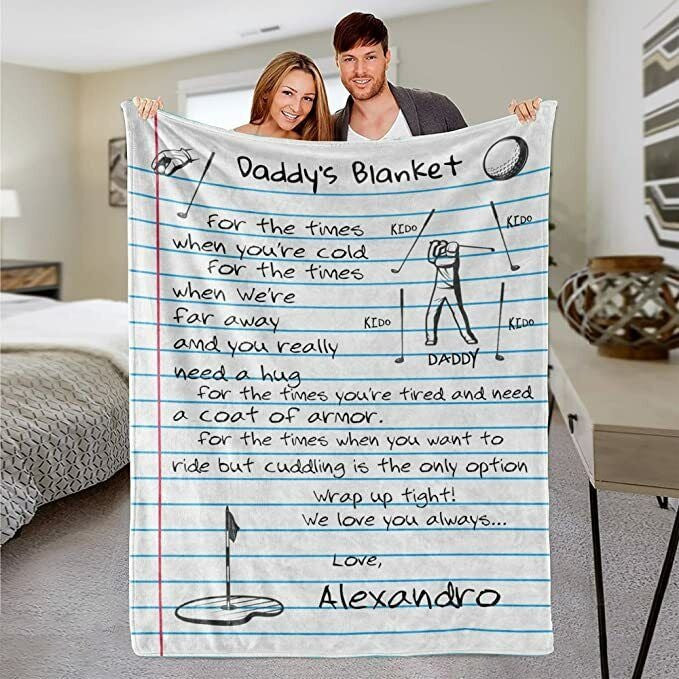 Daddy's Blanket
For the times
when you're cold
For the times
when we're
far away
and you really
need a hug
KIDO
KIDO
KIDO
KIDO
DADDY
For the times you're tired and need
a coat of armor.
For the times when you want to
ride but cuddling is the only option
Wrap up tight!
We love you always...
Love,
Alexandro